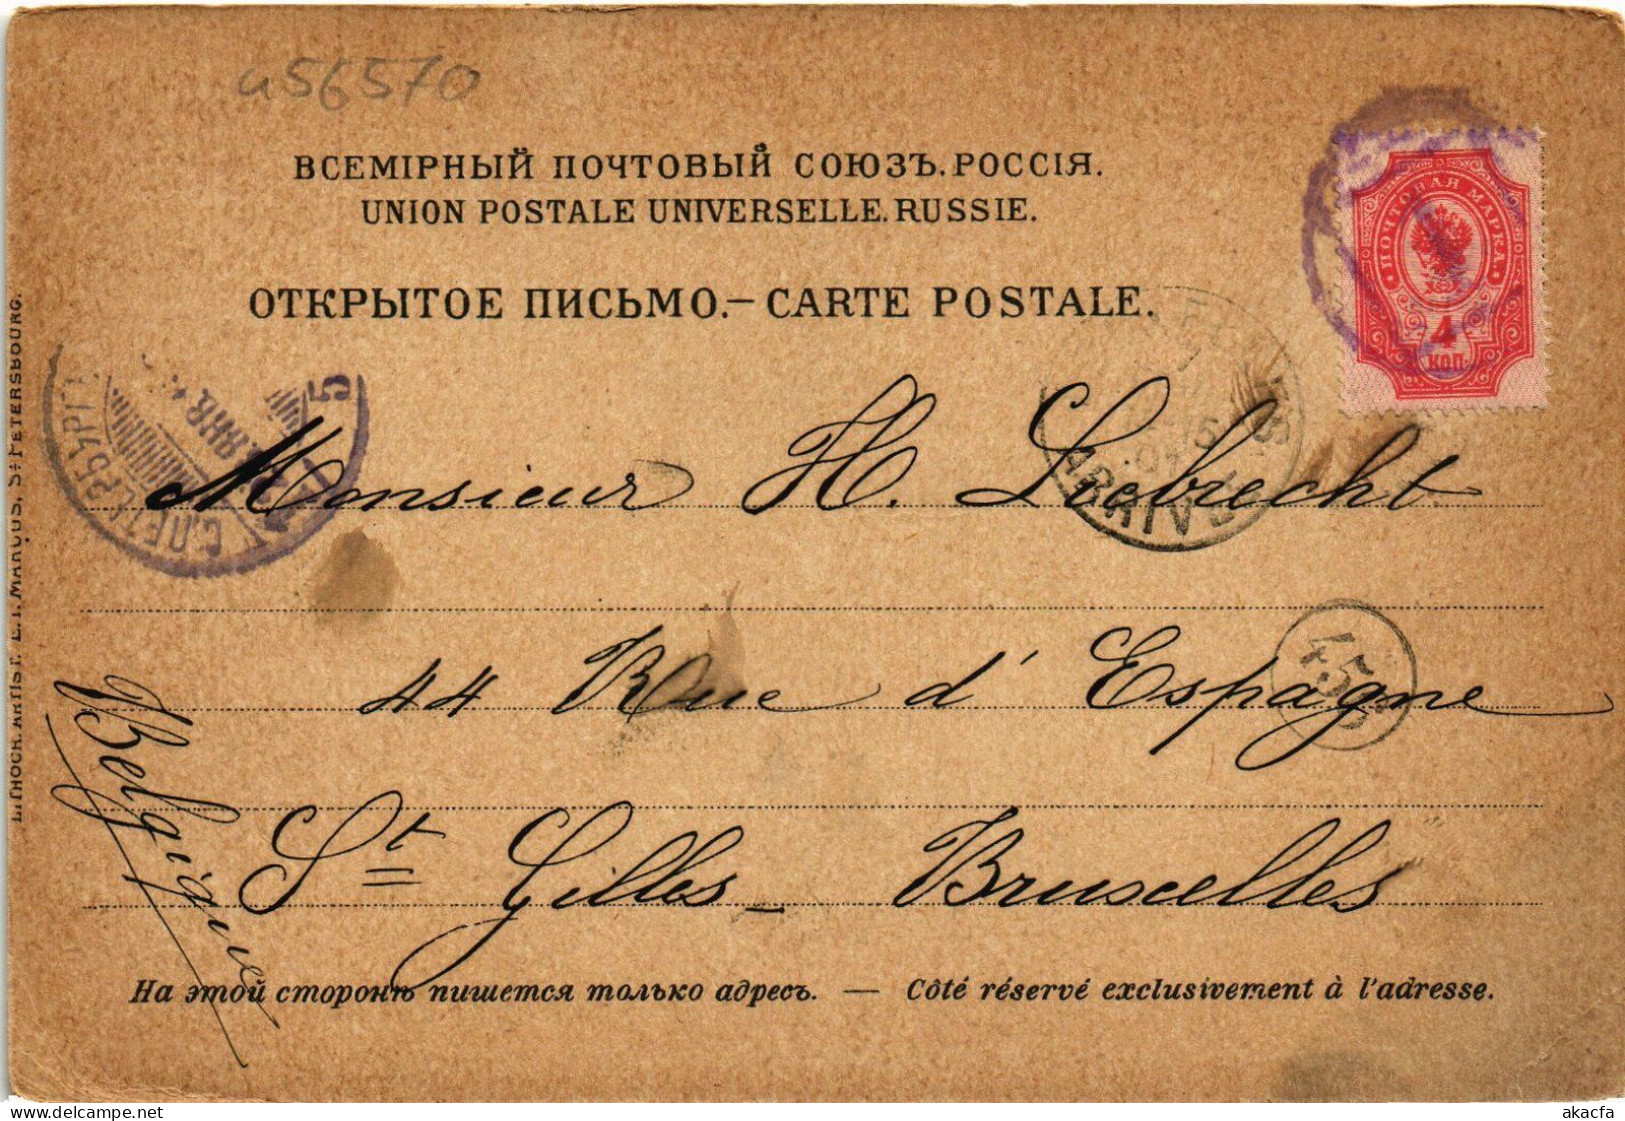 a56570
ВСЕМІРНЫЙ ПОЧТОВЫЙ СОЮЗЪ. РОССІЯ.
UNION POSTALE UNIVERSELLE. RUSSIE.
ОТКРЫТОЕ ПИСЬМО. — CARTE POSTALE.
ПОЧТОВАЯ МАРКА
4
КОП.
С.ПЕТЕРБУРГ
ЯНВ.
5
ARRIVÉE
Monsieur H. Liebrecht
44 Rue d'Espagne
St Gilles - Bruxelles
Belgique
45
На этой сторонѣ пишется только адресъ. — Côté réservé exclusivement à l'adresse.
LITHOGR. ARTIST. E.I. MARCUS, ST PETERSBOURG.
www.delcampe.net
akacfa